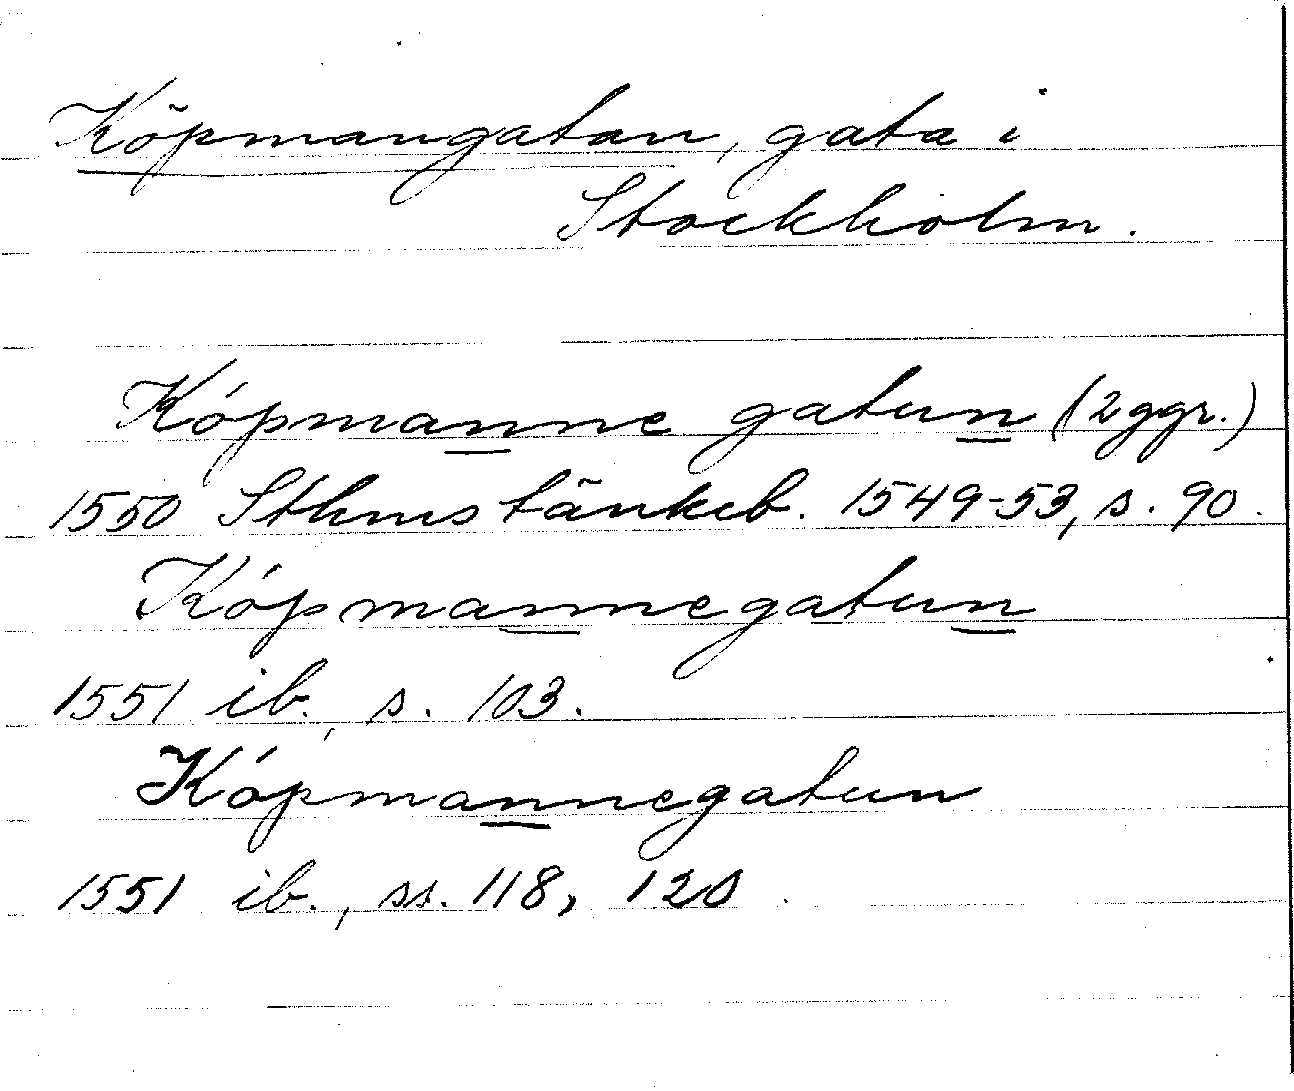 Köpmangatan, gata i
Stockholm.
Kópmanne gatun (2 ggr.)
1550 Sthms tänkeb. 1549-53, s. 90.
Kópmannegatun
1551 ib., s. 103.
Kópmannegatun
1551 ib., ss. 118, 120